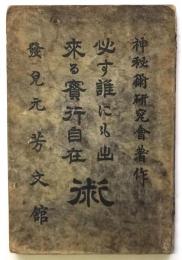 神秘術研究會著作
必す誰にも出
來る實行自在術
發兌元芳文館